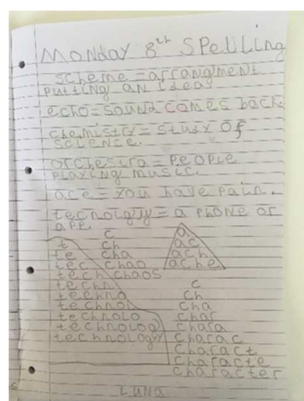 Monday 8th Spelling
scheme = arrangment
putting an idea
echo = sound comes back
chemistry = study of
science.
orchestra = people
playing music.
ace = you have pain.
tecnology = a phone or
app.
t
te
tec
tech
techn
techno
technol
technolo
technolog
technology
c
ch
cha
chao
chaos
a
ac
ach
ache
c
ch
cha
char
chara
charac
charact
characte
character
Luna